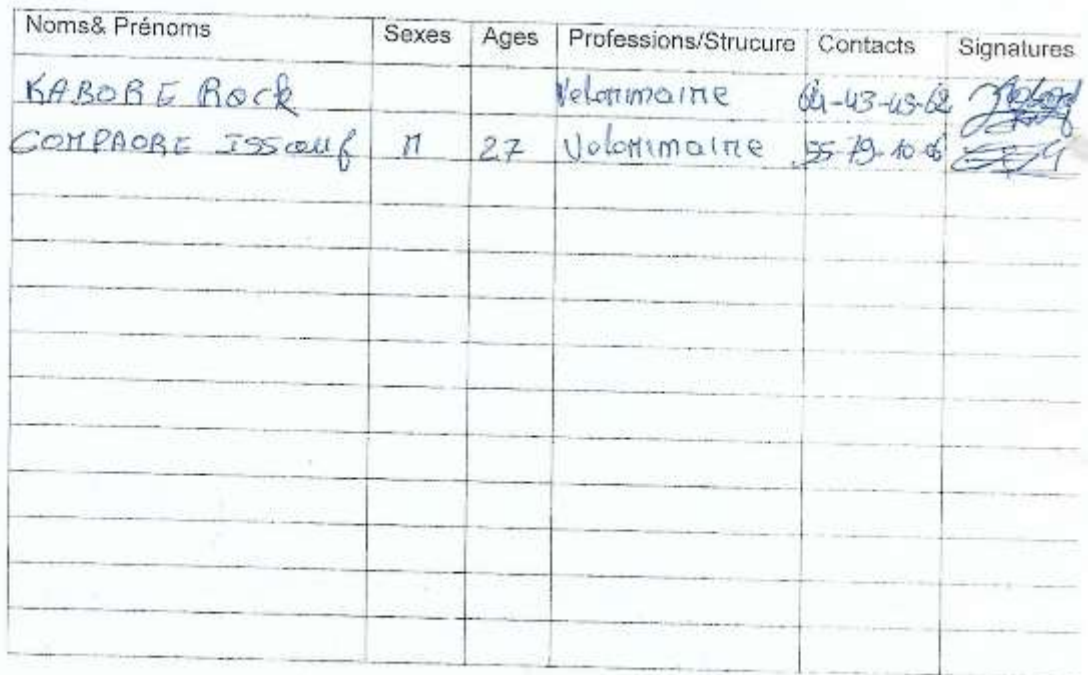 Noms& Prénoms Sexes Ages Professions/Strucure Contacts Signatures
KABORE Rock Velonimaire 64-43-43-62
COMPAORE ISSouf M 27 Volonimaire 55-79-10-06